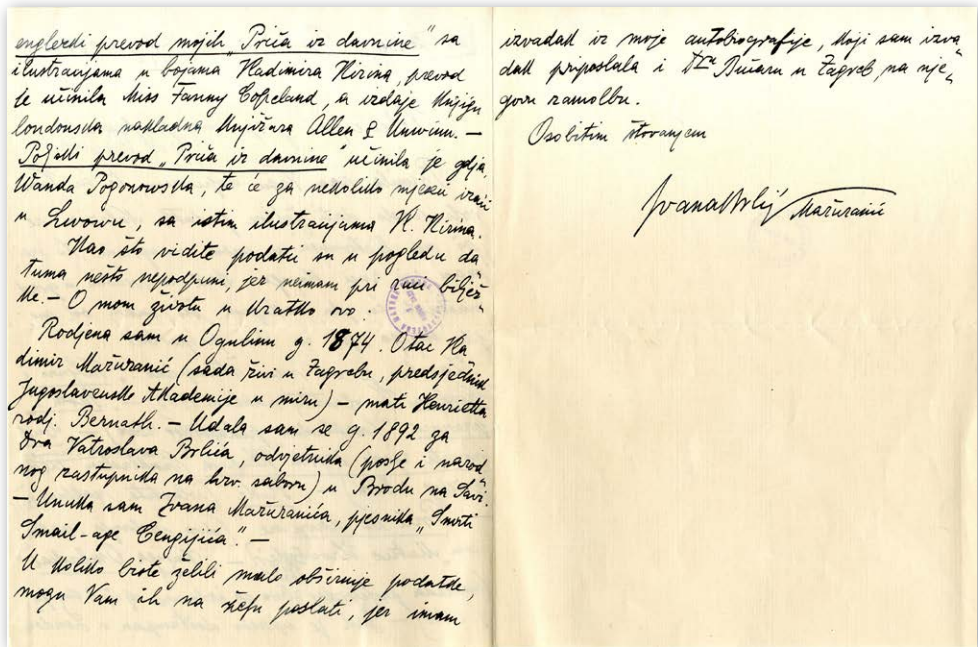 engleski prevod mojih „Priča iz davnine" sa
ilustracijama u bojama Vladimira Kirina, prevod
te učinila Miss Fanny Copeland, a izdaje knjigu
londonska nakladna knjižara Allen & Unwinn. —
Poljski prevod „Priča iz davnine" učinila je gdja
Wanda Pogonowska, te će za nekoliko mjeseci izaći
u Lwowu, sa istim ilustracijama V. Kirina.
Kao što vidite podatci su u pogledu da„
tuma nešto nepodpuni, jer neimam pri ruci biljež„
ke. — O mom životu u kratko ovo:
Rodjena sam u Ogulinu g. 1874. Otac Vla
dimir Mažuranić (sada živi u Zagrebu, predsjednik
Jugoslavenske Akademije u miru) — mati Henrietta
rodj. Bernath. — Udala sam se g. 1892 za
Dra Vatroslava Brlića, odvjetnika (poslje i narod„
nog zastupnika na hrv. saboru) u Brodu na Savi.
— Unuka sam Ivana Mažuranića, pjesnika „Smrti
Smail-age Čengijića". —
U koliko biste želili malo obširnije podatke,
mogu Vam ih na želju poslati, jer imam
izvadak iz moje autobiografije, koji sam izva„
dak priposlala i Dru Bučaru u Zagreb na nje„
govu zamolbu.
Osobitim štovanjem
Ivana Brlić Mažuranić